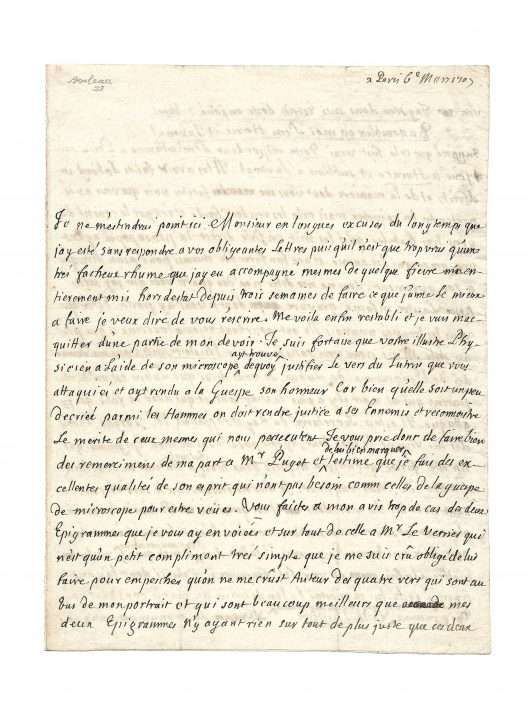 Boileau
a Paris 6e Mars 1707
Je ne m'estendrai point ici Monsieur en longues excuses du long temps que
j'ay esté sans respondre a vos obligeantes Lettres puisqu'il n'est que trop vrai qu'un
tres facheux rhume que j'ay eu accompagné mesmes de quelque fievre m'a en-
tierement mis hors d'estat depuis trois semaines de faire ce que j'aime le mieux
a faire je veux dire de vous rescrire. Me voila enfin restabli et je vais m'ac-
quitter d'une partie de mon devoir. Je suis fort aise que vostre illustre Phy-
sicien a l'aide de son microscope ayt trouvé de quoy justifier le vers du Lutrin que vous
attaquiés et ayt rendu a la Guespe son honneur Car bien qu'elle soit un peu
decriée parmi les Hommes on doit rendre justice a ses Ennemis et reconnoistre
le merite de ceux memes qui nous persecutent Je vous prie donc de faire bien
des remercimens de ma part a Mr Puget et de lui bien marquer l'estime que je fais des ex-
cellentes qualités de son esprit qui n'ont pas besoin comm celles de la guespe
de microscope pour estre veües. Vous faictes a mon avis trop de cas des deux
Epigrammes que je vous ay envoiées et sur tout de celle a Mr Le Verrier qui
n'est qu'un petit compliment tres simple que je me suis crû obligé de lui
faire pour empescher qu'on ne me crûst Auteur des quatre vers qui sont au
bas de mon portrait et qui sont beaucoup meilleurs que mes
deux Epigrammes n'y ayant rien sur tout de plus juste que ces deux